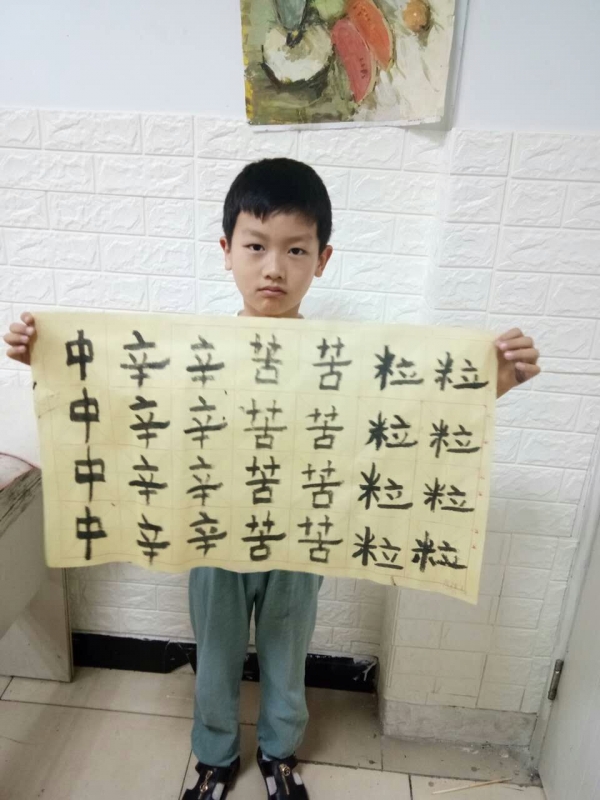 粒粒粒粒
粒粒粒粒
苦苦苦苦
苦苦苦苦
辛辛辛辛
辛辛辛辛
中中中中